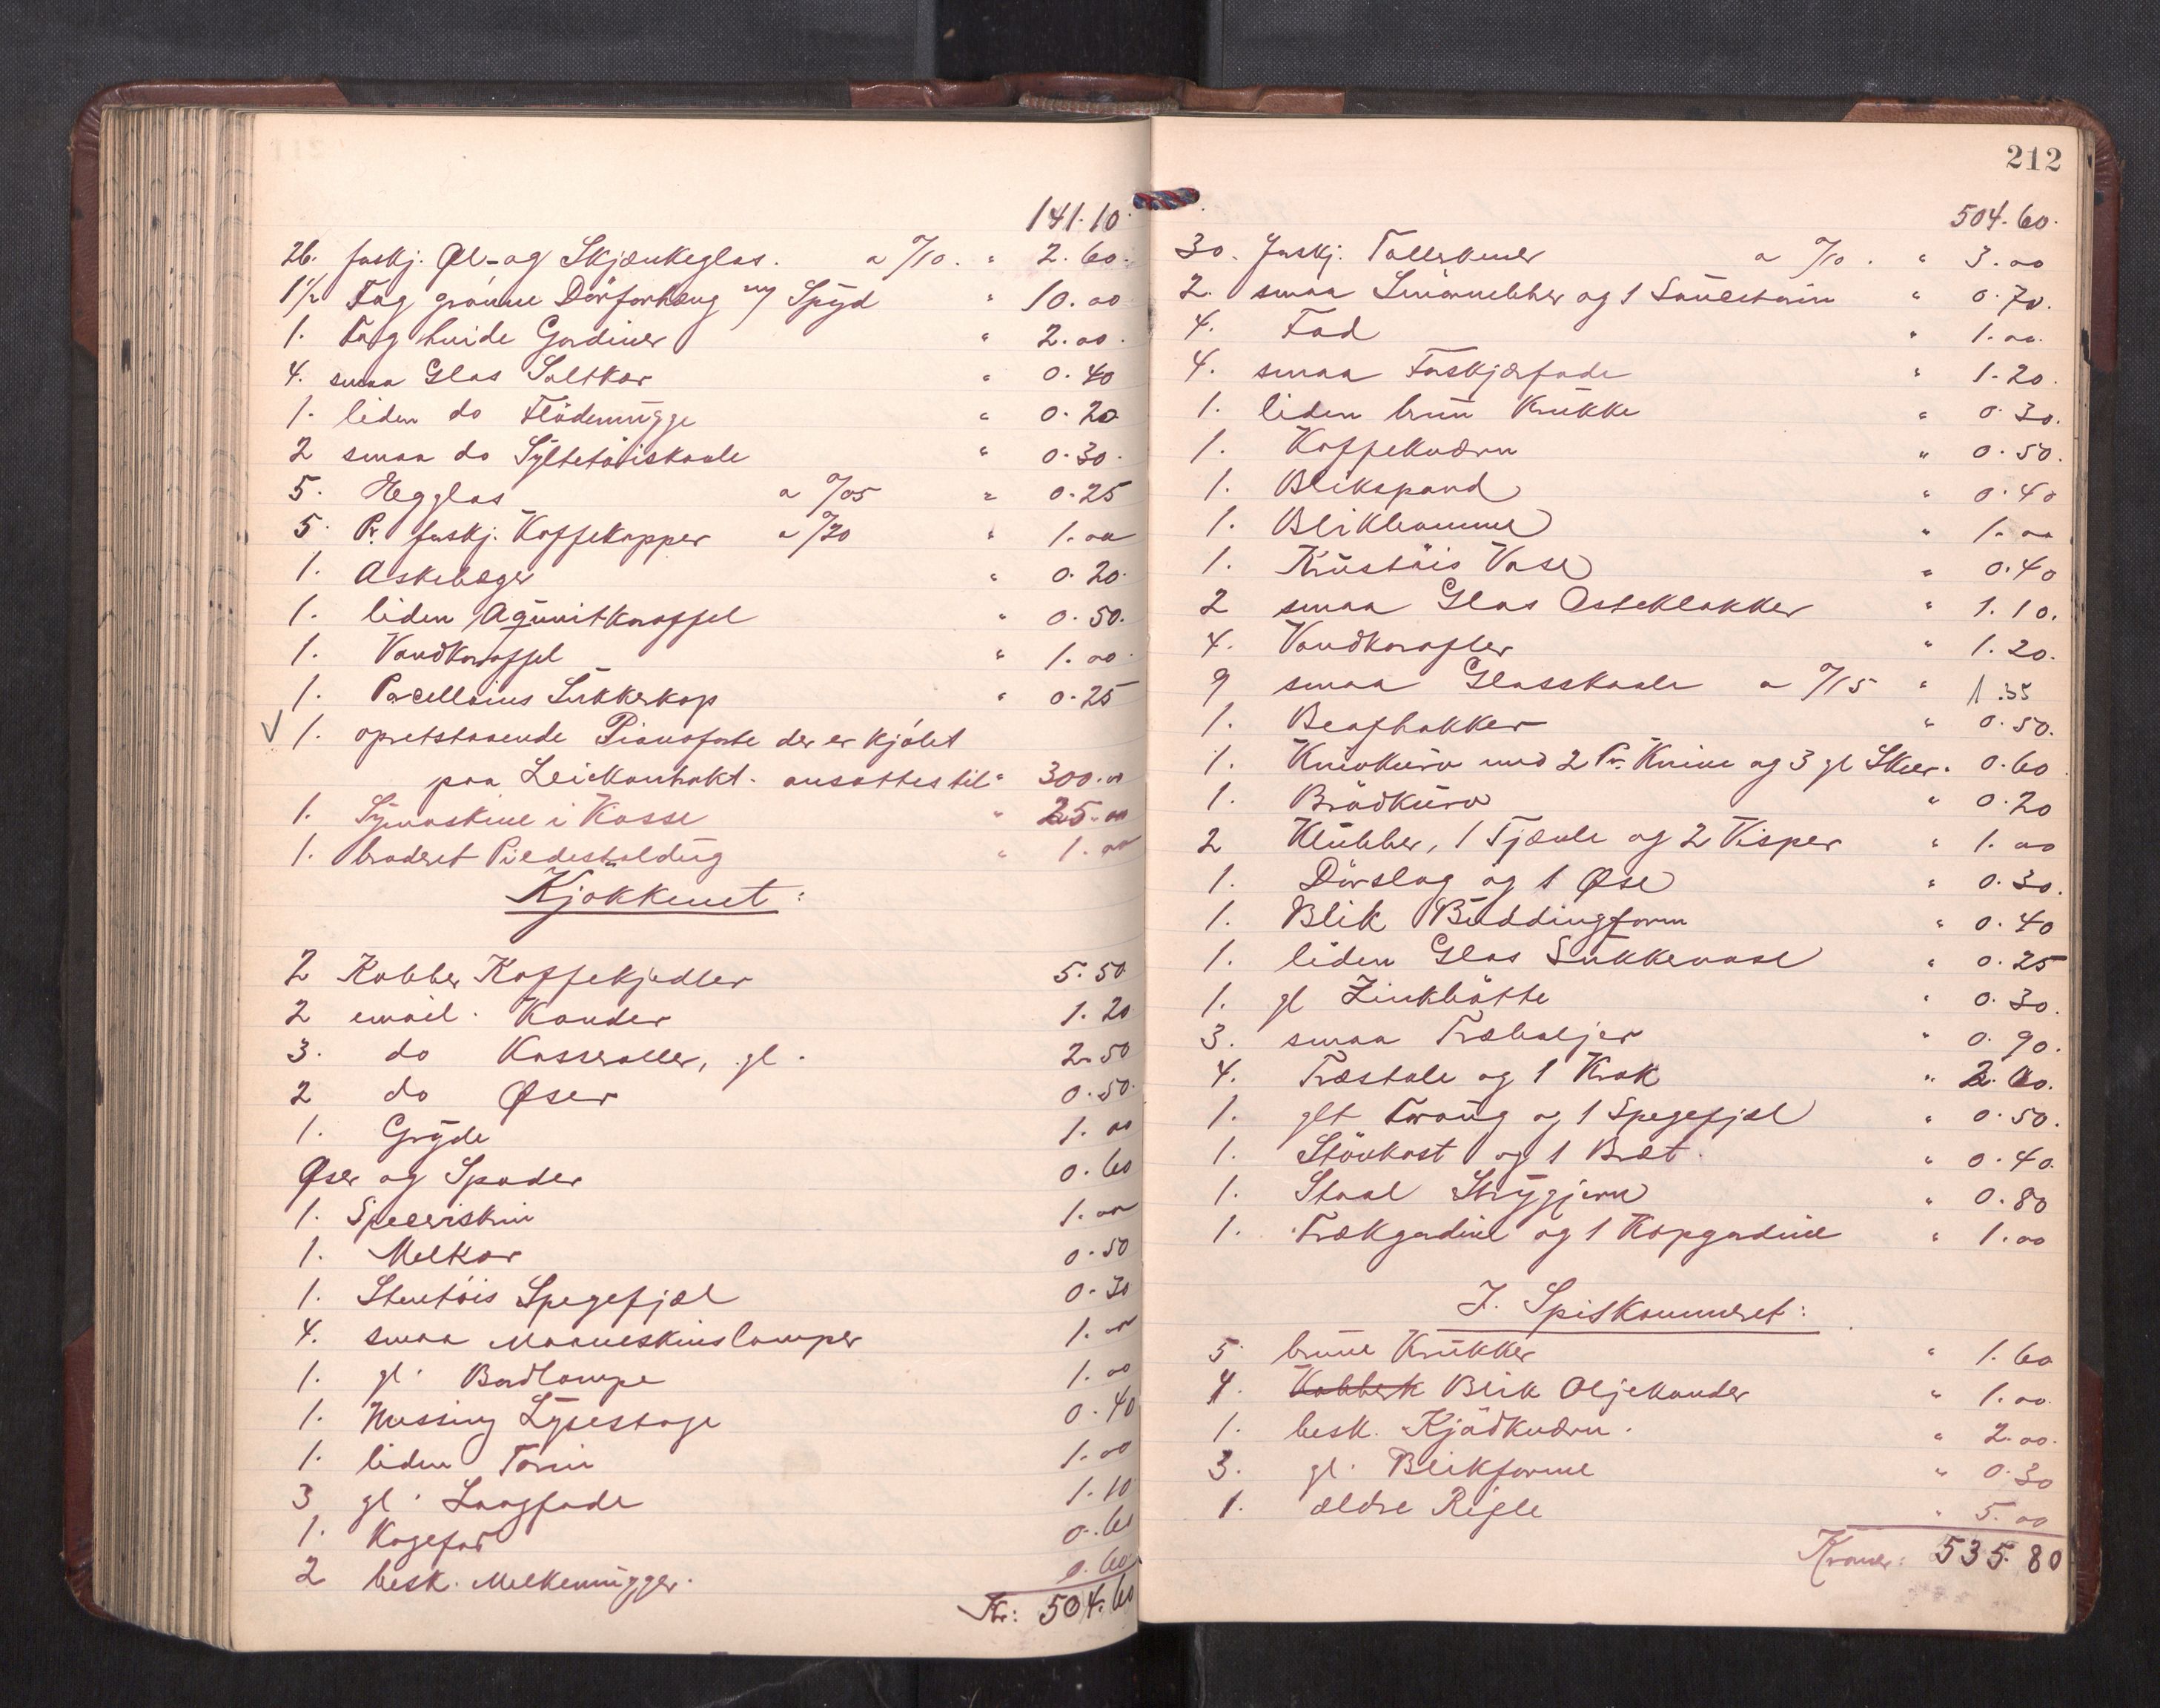 141.10.
26. forskj. Øl- og Skjænkeglas. a %10. " 2.60.
1½ Fag grønne Dörforhæng m/ Spyd " 10.00
1. Fag hvide Gardiner " 2.00.
4. smaa Glas Saltkar " 0.40
1. liden do Flödemugge " 0.20
2 smaa do Syltetöiskaale " 0.30.
5. Hegglas a %05 " 0.25
5. Pr. forskj. Kaffekopper a %20 " 1.00
1. Askebæger " 0.20.
1. liden Aqvavitkaraffel " 0.50.
1. Vandkaraffel " 1.00.
1. Porcellains Sukkerkop " 0.25
√ 1. opretstaaende Pianoforte der er kjöbt
paa Leiekontrakt. ansattes til " 300.00
1. Symaskine i Kasse " 25.00
1. broderet Piedestaldug " 1.00
Kjökkenet:
2 Kobber Kaffekjedler 5.50
2 email. Kander 1.20
3. do Kasseroller, gl. 2.50
2 do Øser 0.50.
1. Gryde 1.00
Øser og Spader 0.60
1. 1.00
1. Melkar 0.50
1. Stentöis Spegefjæl 0.30
4. smaa Maaneskinslamper 1.00
1. gl. Bordlampe 1.00
1. Messing Lysestage 0.40
1. liden Terrin 1.00
3 gl. Langfade 1.10
1. Kagefad 0.60
2 besk. Melkemugger. 0.60
Kr: 504.60
212
504.60.
30. forskj. Tallerkener a %10. " 3.00
2. smaa Smörnebber og 1 Sauceterrin " 0.70.
4. Fad " 1.00.
4. smaa Forskjærfade " 1.20.
1. liden brun Krukke " 0.30.
1. Kaffekværn " 0.50.
1. Blikspand " 0.40
1. Blikkomme " 1.00
1. Krustöis Vase " 0.40
2 smaa Glas Osteklokker " 1.10.
4. Vandkarafler " 1.20.
9 smaa Glasskaale a %15 " 1.35
1. Beafhakker " 0.50.
1. Knivkurv med 2 Pr. Knive og 3 gl Skeer. 0.60
1. Brödkurv " 0.20
2 Klubber, 1 Fjæle og 2 Visper " 1.00
1. Dörslag og 1 Øse " 0.30.
1. Blik Buddingform " 0.40
1. liden Glas Sukkervase " 0.25
1. gl Zinkbötte " 0.30.
3. smaa Træbaljer " 0.90.
4. Træstole og 1 Krak " 2.00.
1. glt Traug og 1 Spegefjæl " 0.50.
1. Stövkost og 1 Bræt. " 0.40.
1. Staal Strygjern " 0.80
1. Trækgardine og 1 Kapgardine " 1.00
I. Spiskammeret:
5 brune Krukker " 1.60
4. Kobberk Blik Oljekander " 1.00.
1. besk. Kjödkværn. " 2.00.
3. gl. Blikforme " 0.30
1. ældre Rifle " 5.00
Kroner: 535.80